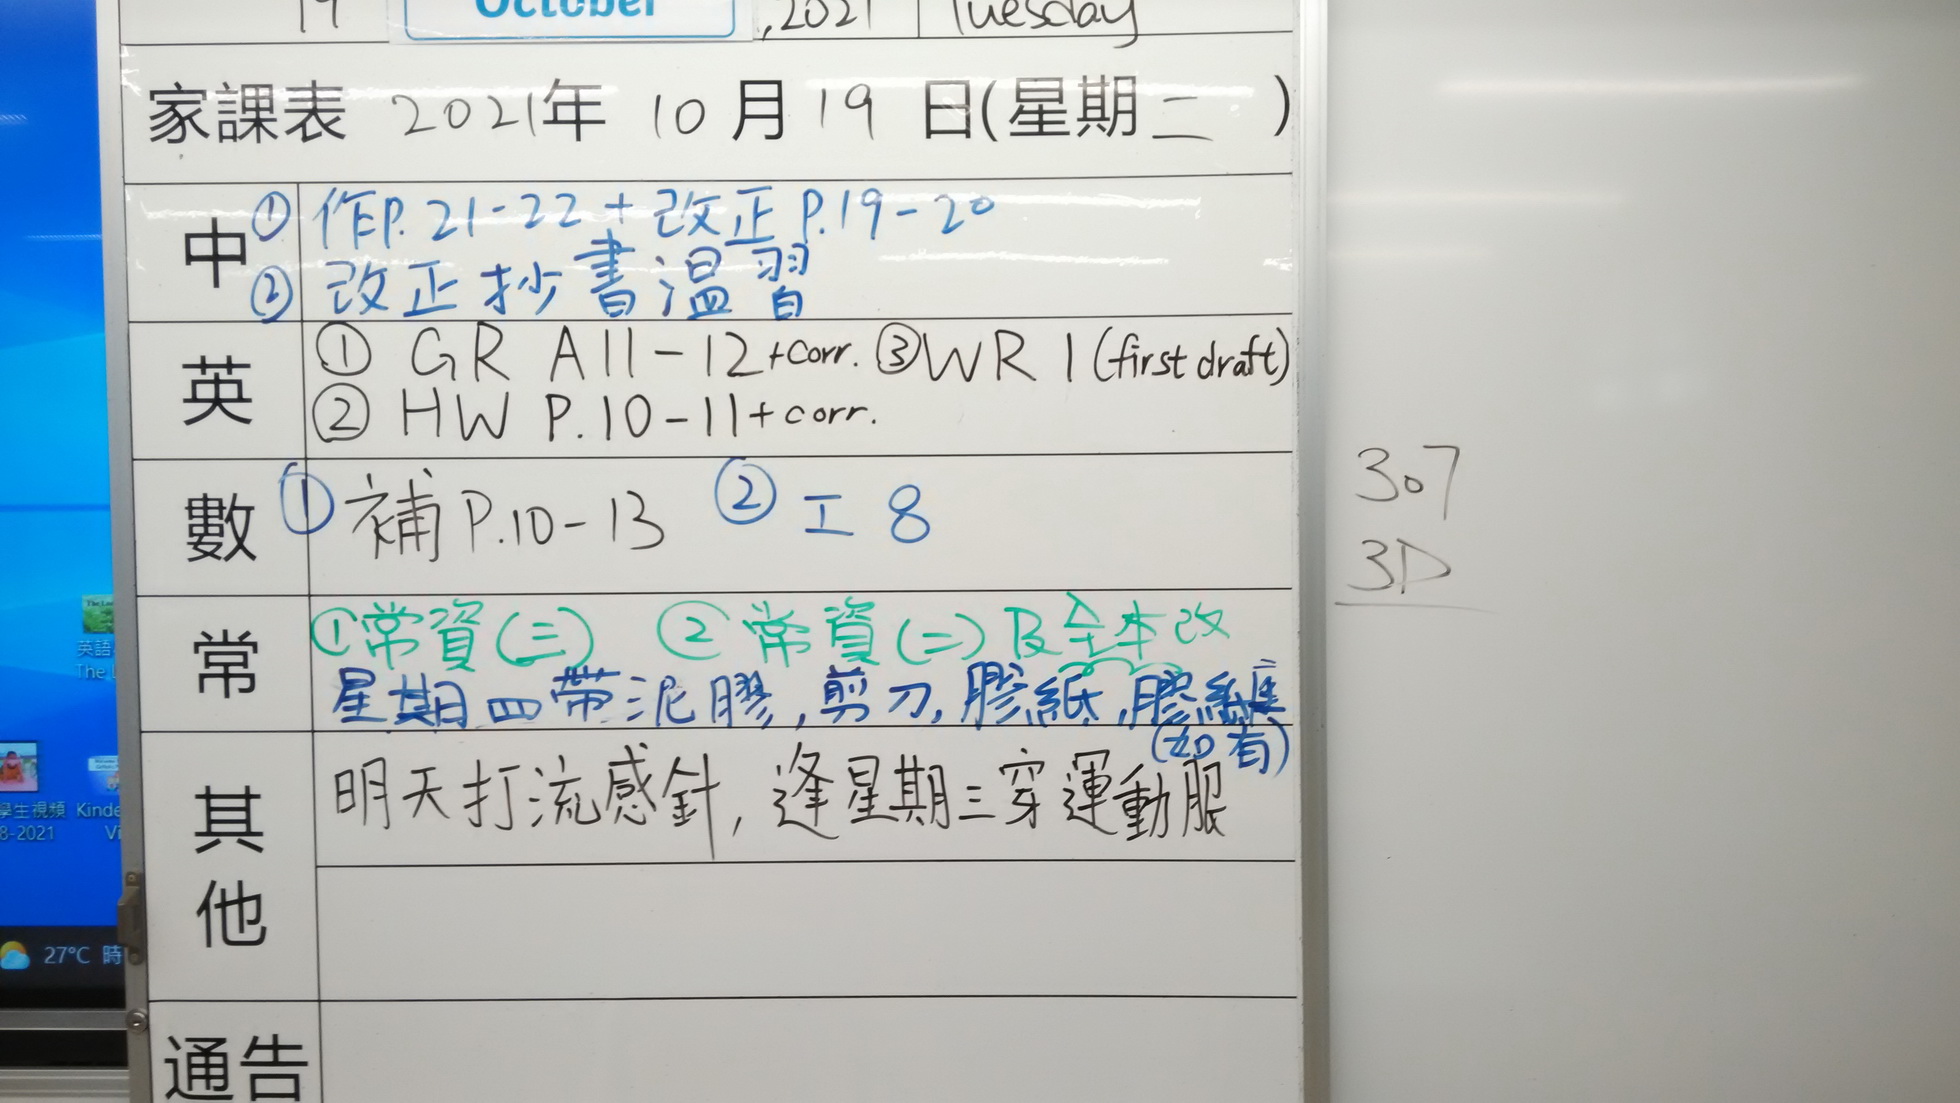 19 October, 2021 Tuesday
家課表 2021年 10月19日(星期二 )
中
① 作P.21-22 + 改正P.19-20
② 改正抄書溫習
英
① GR A11-12+corr. ③WR 1 (first draft)
② HW P.10-11+corr.
數
① 補P.10-13 ② 工8
常
①常資(三) ② 常資(二)及全本改
星期四帶泥膠,剪刀,膠紙,膠紙座
(如有)
其他
明天打流感針,逢星期三穿運動服
通告
307
3D
The L
英語
The L
學生視頻
8-2021
Kinde
Vi
27°C